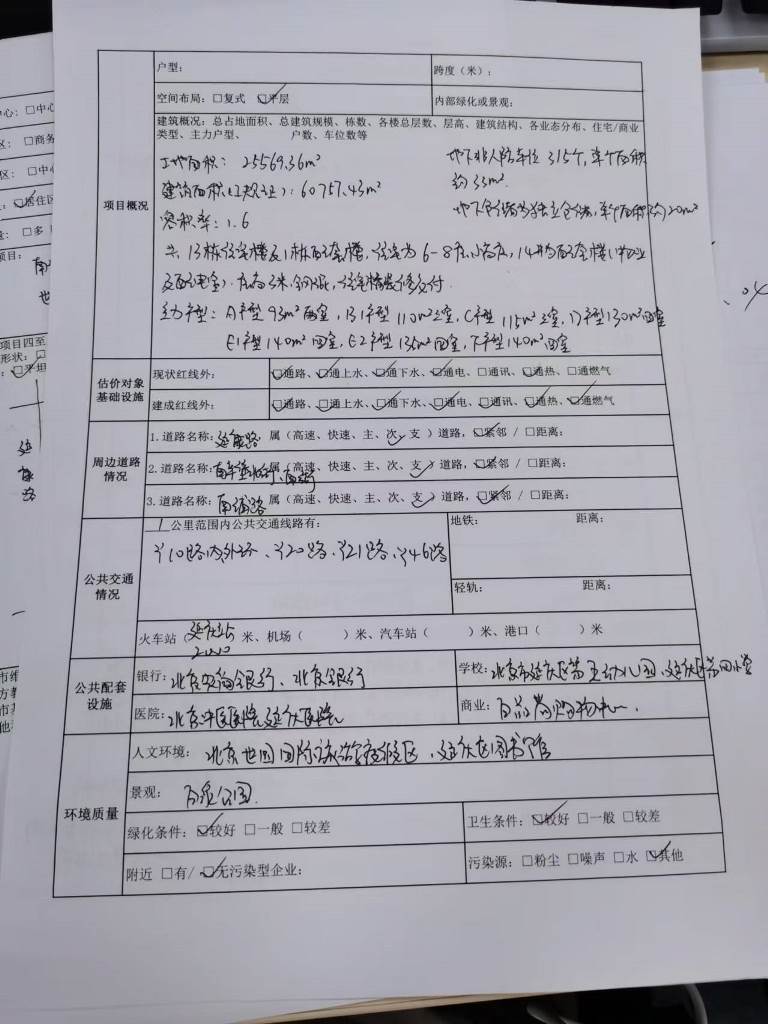 户型：
跨度（米）：
空间布局：□复式 ☑平层
内部绿化或景观：
建筑概况：总占地面积、总建筑规模、栋数、各楼总层数、层高、建筑结构、各业态分布、住宅/商业
类型、主力户型、 户数、车位数等
项目概况
土地面积：25569.36m²
地下非人防车位 315个，单个面积
约35m².
建筑面积（工规证）：60757.43m²
地下仓储为独立仓储，单个面积约20m²
容积率：1.6
共13栋住宅楼及1栋配套楼，住宅为6-8层小高层，14#为配套楼（物业
及配电室）.层高3米.钢混，住宅精装修交付.
主力户型：A户型93m²两室，B1户型110m²三室，C户型115m²三室，D户型130m²四室
E1户型140m²四室，E2户型135m²四室，F户型140m²四室
估价对象
基础设施
现状红线外：
☑通路、☑通上水、☑通下水、☑通电、□通讯、☑通热、□通燃气
建成红线外：
☑通路、☑通上水、☑通下水、☑通电、□通讯、☑通热、☑通燃气
周边道路
情况
1.道路名称：延康路 属（高速、快速、主、次✓、支）道路，☑紧邻 / □距离：
2.道路名称： 属（高速、快速、主、次、支✓）道路，☑紧邻 / □距离：
3.道路名称：南浦路 属（高速、快速、主、次、支✓）道路，☑紧邻 / □距离：
公共交通
情况
1 公里范围内公共交通线路有：
地铁： 距离：
Y10路内外环、Y20路、Y21路、Y46路
轻轨： 距离：
火车站（延庆站 ）米、机场（ ）米、汽车站（ ）米、港口（ ）米
公共配套
设施
银行：北京农商银行、北京银行
学校：北京市延庆区第五幼儿园、延庆区第四小学
医院：北京中医医院延庆医院
商业：
环境质量
人文环境：北京世园国际旅游度假区、延庆区图书馆
景观：百泉公园.
绿化条件：☑较好 □一般 □较差
卫生条件：☑较好 □一般 □较差
附近 □有/ ☑无污染型企业：
污染源：□粉尘 □噪声 □水 ☑其他